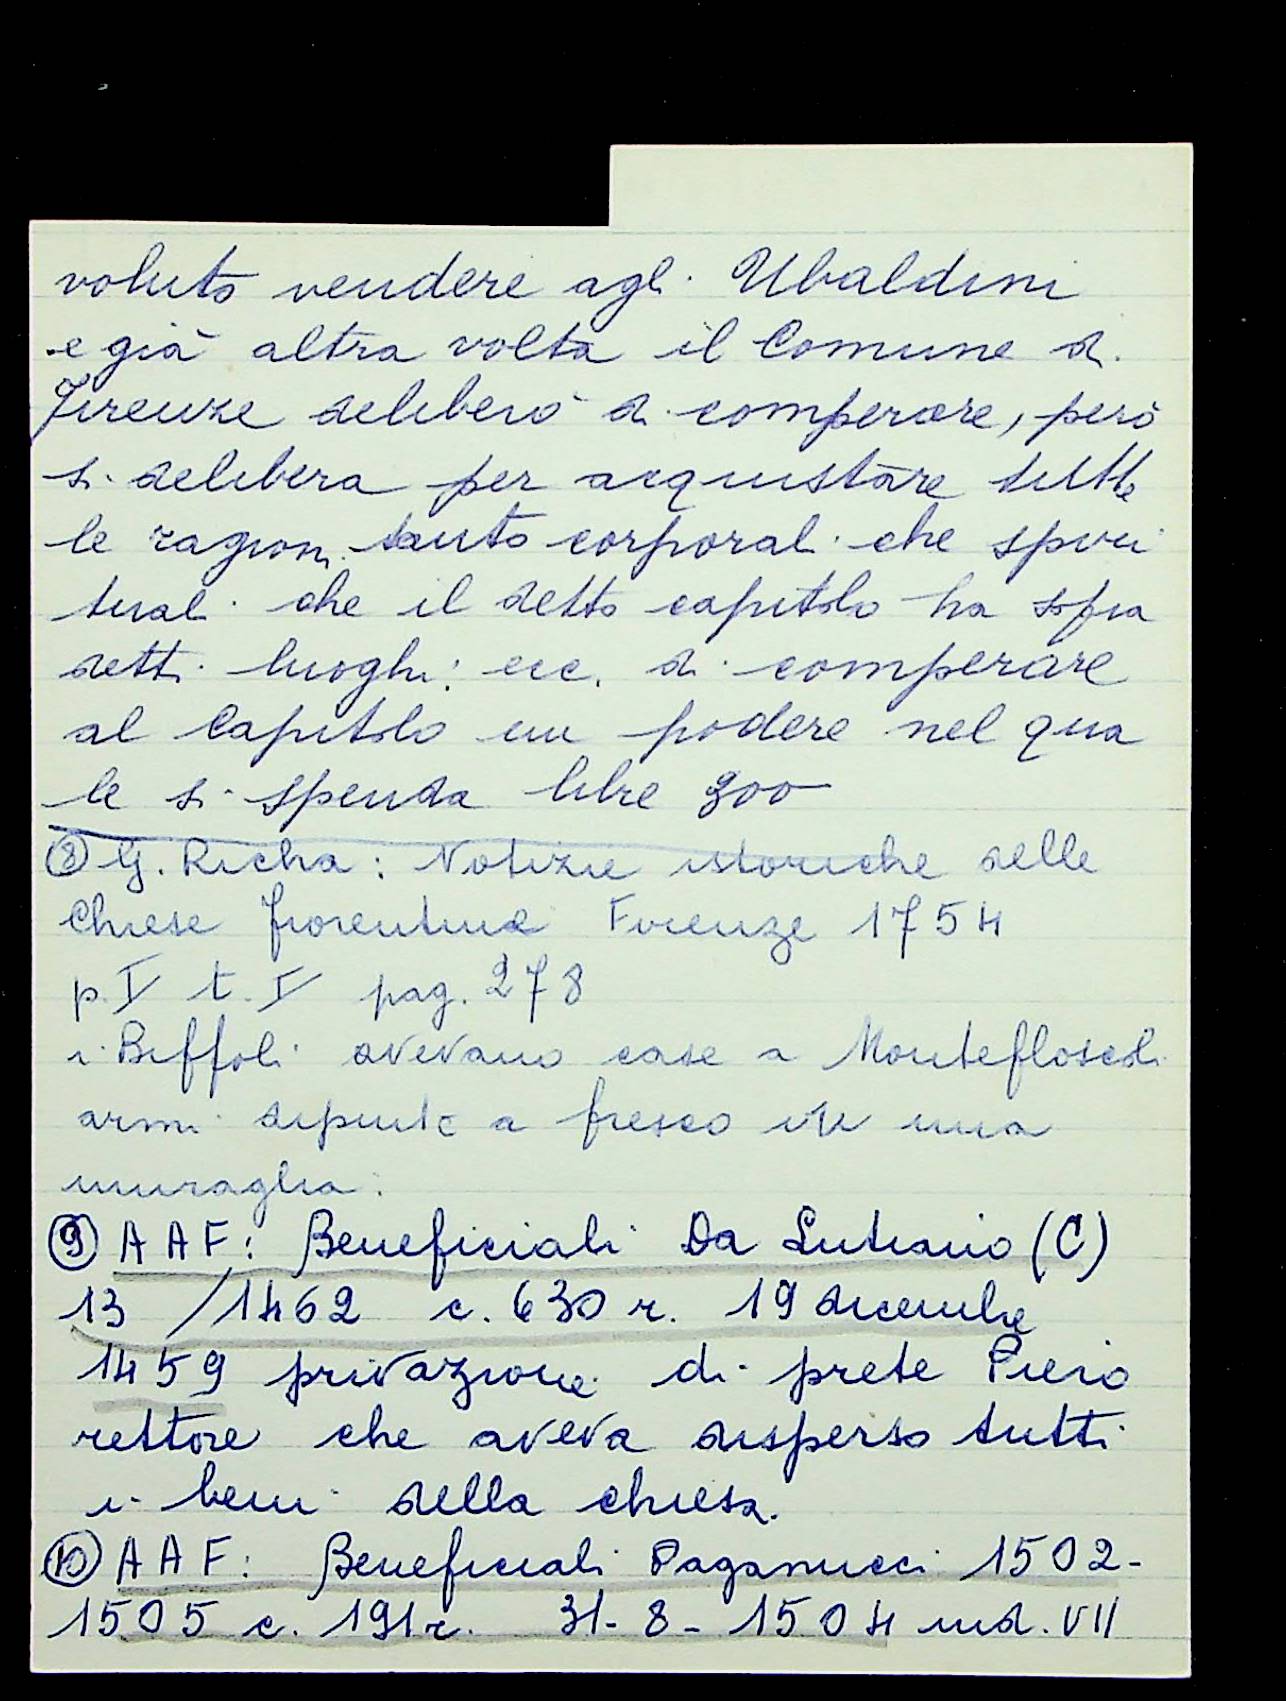 voluto vendere agli Ubaldini
e già altra volta il Comune di
Firenze deliberò di comperare, però
si delibera per acquistare tutte
le ragioni tanto corporali che spiri
tuali che il detto capitolo ha sopra
detti luoghi: ecc. di comperare
al Capitolo un podere nel qua
le si spenda libre 300
⑧ G. Richa: Notizie istoriche delle
Chiese fiorentine Firenze 1754
p. V t. V pag. 278
i Biffoli avevano case a Montefloscoli
armi dipinte a fresco in una
muraglia.
⑨ AAF: Beneficiali Da Lutiano (C)
13 /1462 c. 630 r. 19 dicembre
1459 privazione di prete Piero
rettore che aveva disperso tutti
i beni della chiesa.
⑩ AAF: Beneficiali Paganucci 1502-
1505 c. 191r. 31-8-1504 ind. VII